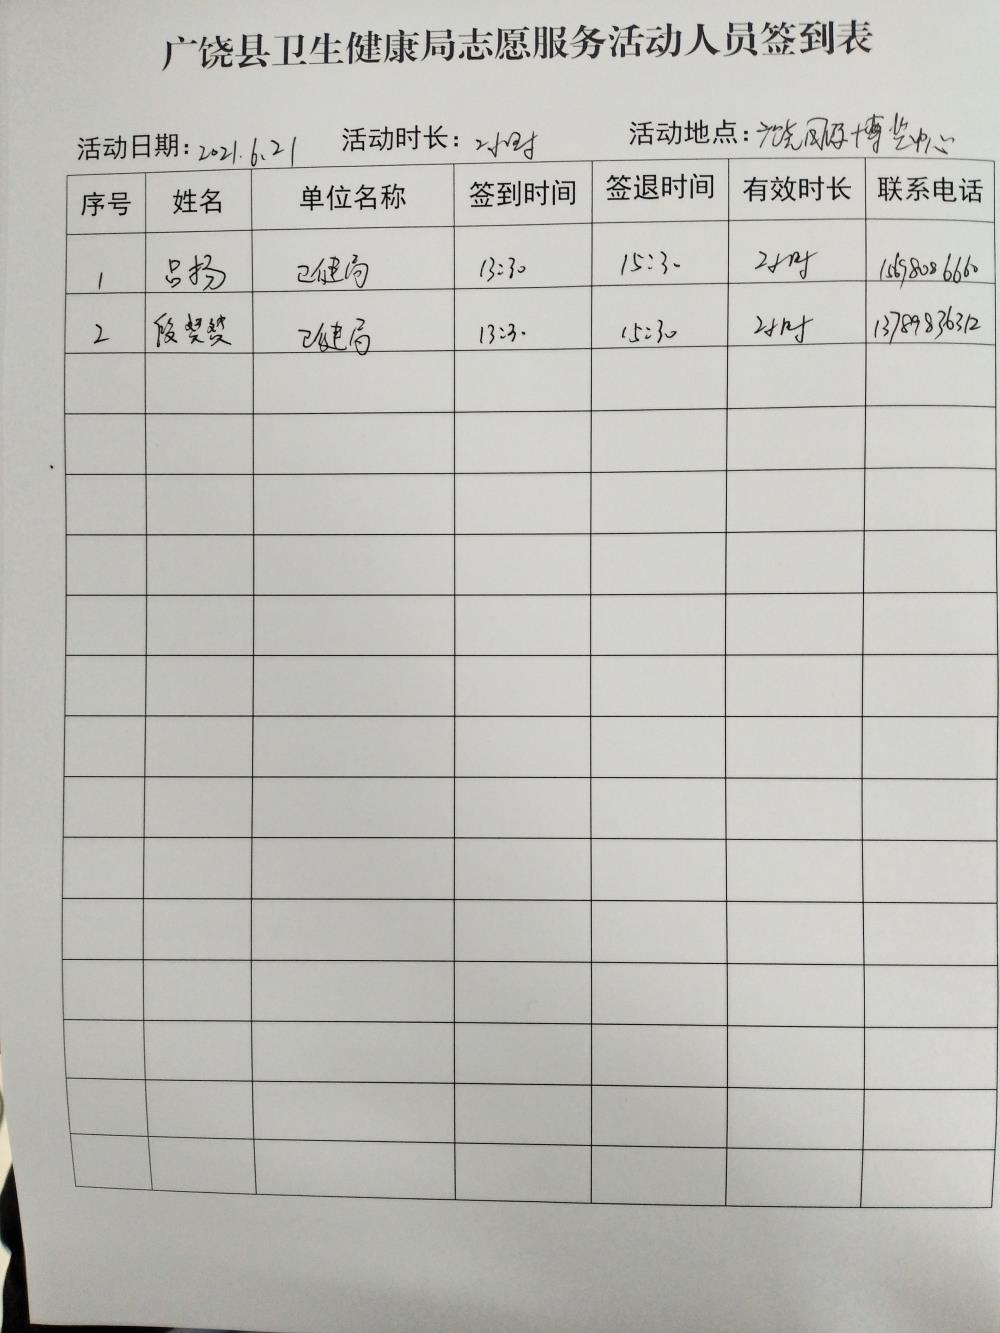 广饶县卫生健康局志愿服务活动人员签到表
活动日期：2021.6.21 活动时长：2小时 活动地点：广饶国际博览中心
序号 姓名 单位名称 签到时间 签退时间 有效时长 联系电话
1 吕扬 卫健局 13:30 15:30 2小时 15698086660
2 段樊樊 卫健局 13:30 15:30 2小时 13789836312